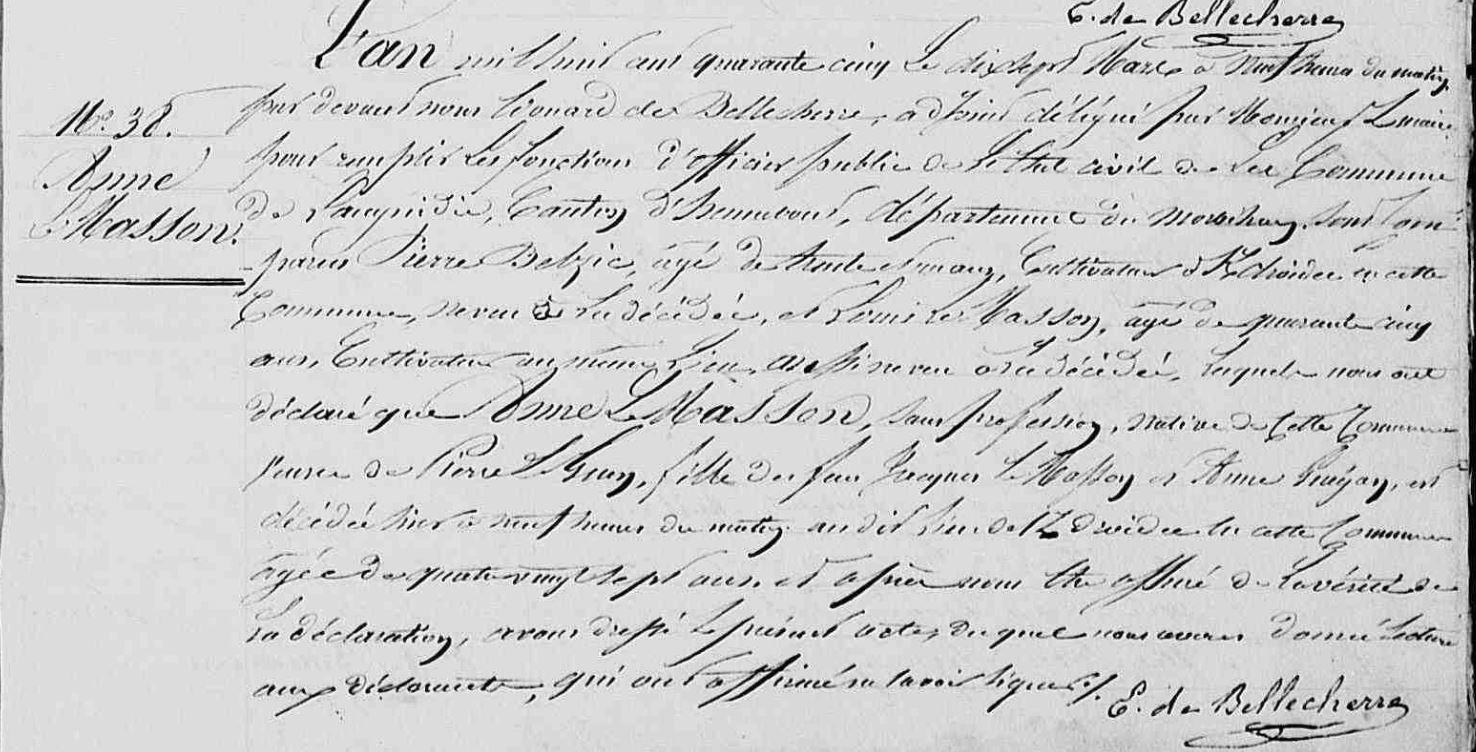 E. de Bellecherre
L'an mil huit cent quarante cinq le dix sept Mars à neuf heures du matin,
N.° 38.
par devant nous Léonard de Bellecherre, adjoint délégué par Monsieur le maire
Anne
pour remplir les fonctions d'officier public de l'état civil de la Commune
le Masson.
de Languidic, Canton d'hennebont, département du morbihan, sont Com-
parus Pierre Belzic, âgé de trente et un ans, Cultivateur à en cette
Commune, neveu à la décédée, et Louis Le Masson, âgé de quarante cinq
ans, Cultivateur au même lieu, aussi neveu à la décédée, lesquels nous ont
déclaré que Anne Le Masson, sans profession, native de cette Commune
veuve de Pierre fille de feu Jacques Le Masson et Anne est
décédée hier à neuf heures du matin au dit lieu de en cette Commune
âgée de quatre vingt sept ans et après nous être assuré de la vérité de
la déclaration, avons dressé le présent acte, du quel nous avons donné lecture
aux déclarants, qui ont affirmé ne savoir signer ./.
E. de Bellecherre